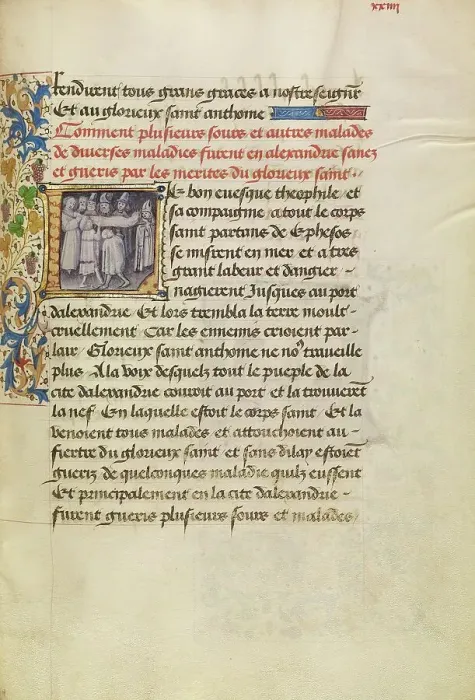 xxiiii
rendirent tous grans graces a nostre seigneur
Et au glorieux saint anthome
Comment plusieurs sours et autres malades
de diverses maladies furent en alexandrie sanez
et gueris par les merites du glorieux saint
Le bon evesque theophile et
sa compaignie a tout le corps
saint partans de Ephesos
se misrent en mer et a tres
grant labeur et dangier -
nagierent Jusques au port
dalexandrie Et lors trembla la terre moult -
cruellement Car les ennemis crioient par -
lair Glorieux saint anthome ne no9 traveille
plus A la voix desquelz tout le pueple de la
cite dalexandrie couroit au port et la trouverēt
la nef En laquelle estoit le corps saint Et la
venoient tous malades et attouchoient au -
fiertre du glorieux saint et sans dilay estoiēt
gueriz de quelconques maladie quilz eussent
Et principalement en la cite dalexandrie -
furent gueris plusieurs sours et malades